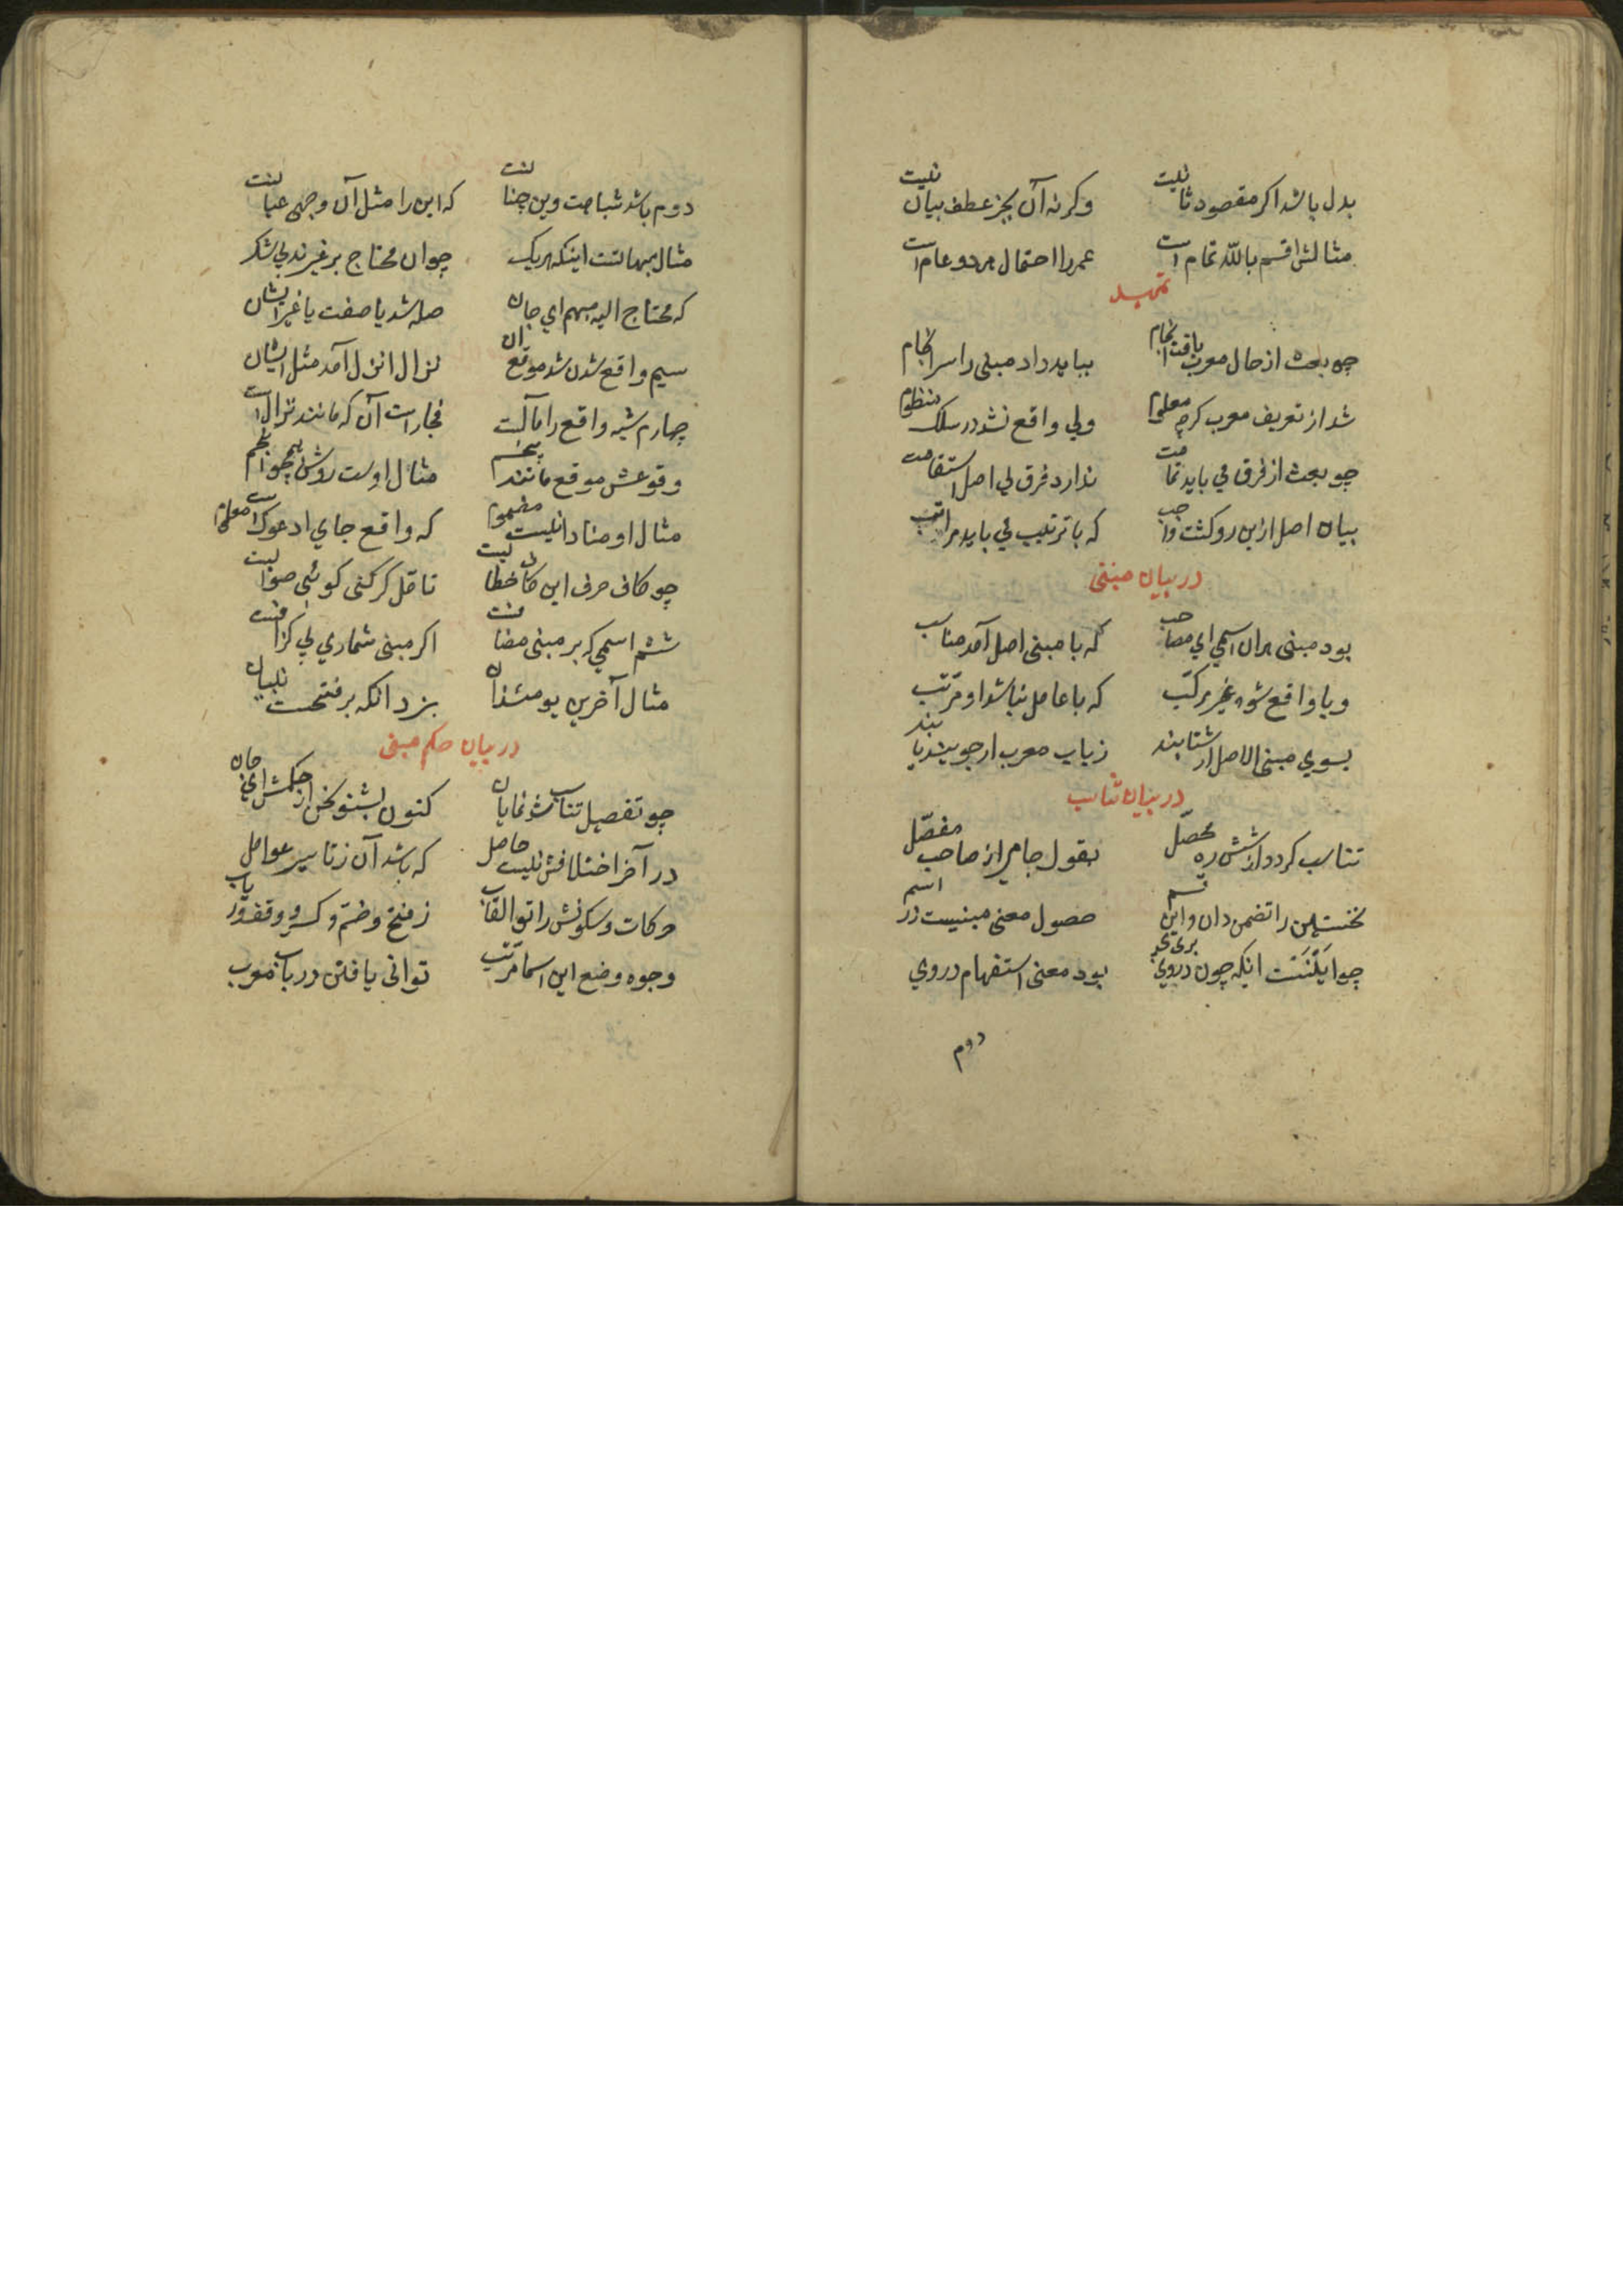 بدل باشد اکر مقصود ثانیست وکرنه آن بجز عطف بیان نیست
مثالش اقسم بالله تمام است عمر را احتمال هر دو عام است
تمهید
چو بحث از حال معرب یافت انجام بباید داد مبنی را سرانجام
شد از تعریف معرب کرچه معلوم ولی واقع نشد در سلک منظوم
چو بحث از فرق می باید تمامت ندارد فرق بی اصل استقامت
بیان اصل ازین رو کشت واجب که با ترتیب می باید مراتب
در بیان مبنی
بود مبنی هران اسمی ای مصاحب که با مبنی اصل آمد مناسب
و یا واقع شود غیر مرکب که با عامل نباشد او مرتب
بسوی مبنی الاصل ار شتابند ز باب معرب ار جویند یابند
در بیان تناسب
تناسب کردد از شش ره محصّل بقول جامی از صاحب مفصّل
نخستین را تضمن دان و این قسم حصول معنی مبنیست در اسم
چو این بنت انکه چون در وی بری پی بود معنی استفهام در وی
دوم
دوم باشد شباهت وین چنانست که این را مثل آن وجهی عیانست
مثال مبهماتست اینکه هریک چو ان محتاج بر غیرند بی شک
که محتاج الیه مبهم ای جان صله شد یا صفت یا غیر ایشان
سیم واقع شدن شد موقع ان نزال انزل آمد مثل ایشان
چهارم شبه واقع را مآلست فجارست آن که مانند نزال است
وقوعش موقع مانند پنجم مثال اوست روشن همچو انجم
مثال او منادا نیست مضموم که واقع جای ادعوک است معلوم
چو کاف حرف این کاف خطابیست تامل کر کنی کوئی صوابیست
ششم اسمی که بر مبنی مضافست اکر مبنی شماری بی کزافست
مثال آخرین یومئذ ان بزد انکه بر فتحست تبیان
در بیان حکم مبنی
چو تفصیل تناسب شد نمایان کنون بشنو سخن از حکمش ای جان
در آخر اختلافش نیست حاصل که باشد آن ز تاثیر عوامل
حرکات و سکونش را تو القاب ز فتح و ضم و کسر و وقف دریاب
وجوه وضع این اسما مرتب توانی یافتن در باب معرب